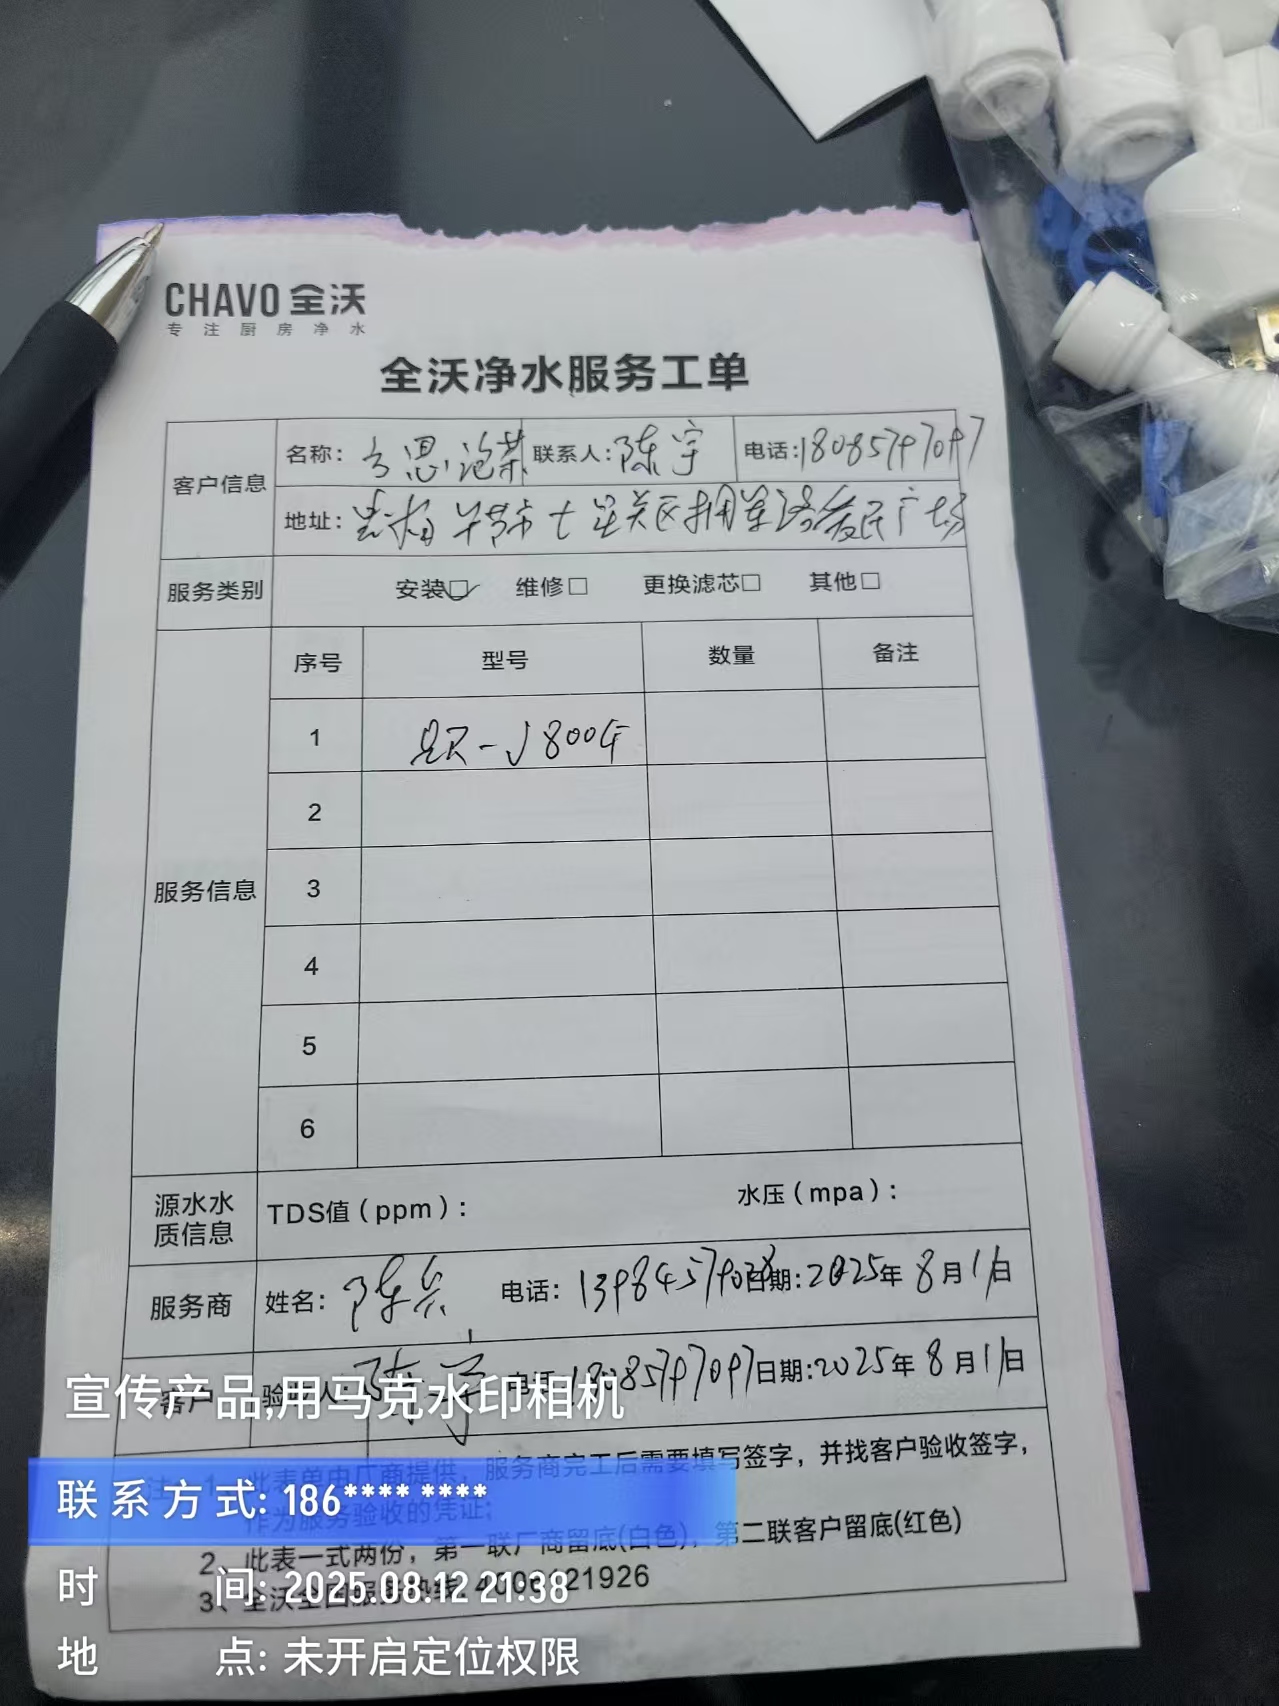 CHAVO 全沃
专注厨房净水
全沃净水服务工单
客户信息
名称: 联系人: 陈宇 电话: 18085797097
地址: 贵州毕节市七星关区拥军路爱民广场
服务类别 安装☑ 维修□ 更换滤芯□ 其他□
服务信息
序号 型号 数量 备注
1
2
3
4
5
6
源水水质信息 TDS值(ppm): 水压(mpa):
服务商 姓名: 电话: 日期: 2025年8月11日
客户 验收人: 陈宇 电话: 18085797097 日期: 2025年8月11日
注: 1、此表单由厂商提供,服务商完工后需要填写签字,并找客户验收签字,
作为服务验收的凭证;
2、此表一式两份,第一联厂商留底(白色),第二联客户留底(红色)
3、全沃全国服务热线:4006121926
宣传产品,用马克水印相机
联系方式: 186**** ****
时间: 2025.08.12 21:38
地点: 未开启定位权限